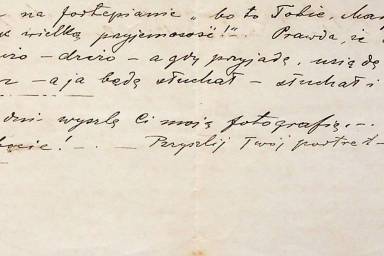 na fortepianie „bo to Tobie, Ma
wielką przyjemność!" Prawda, że
– dużo – a gdy przyjadę, usią dę
– a ja będę słuchał – słuchał i
dni wyszlę Ci moją fotografię. –
! – Przyszlij Twój portret –